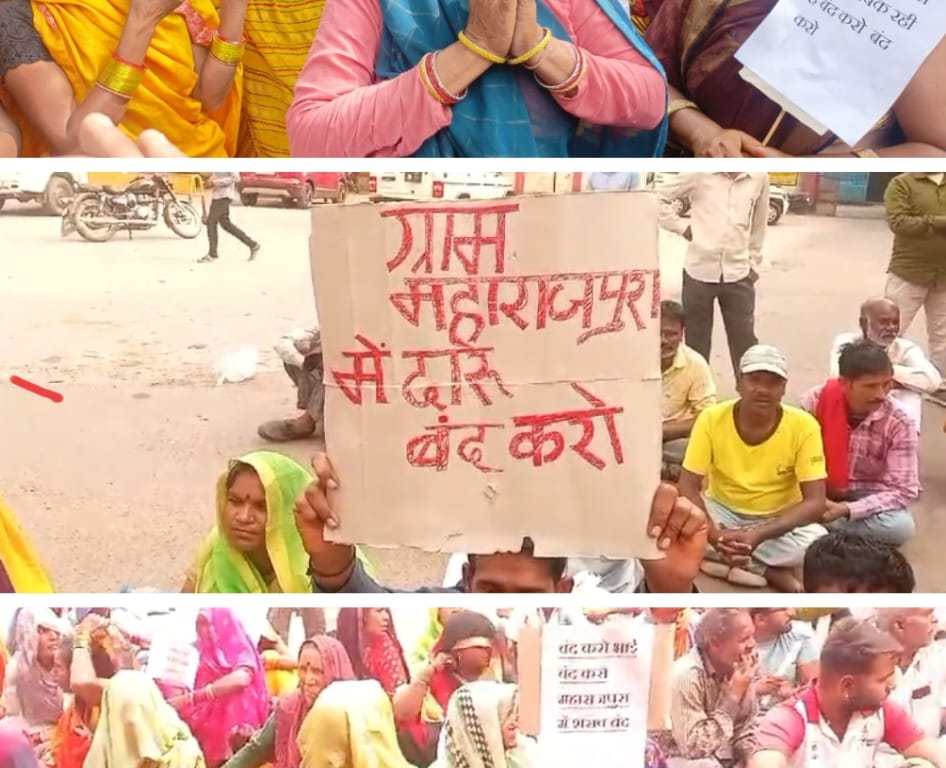 रही
बंद करो बंद
करो
ग्राम
महाराजपुरा
में दारू
बंद करो
बंद करो भाई
बंद करो
महाराजपुरा
में शराब बंद